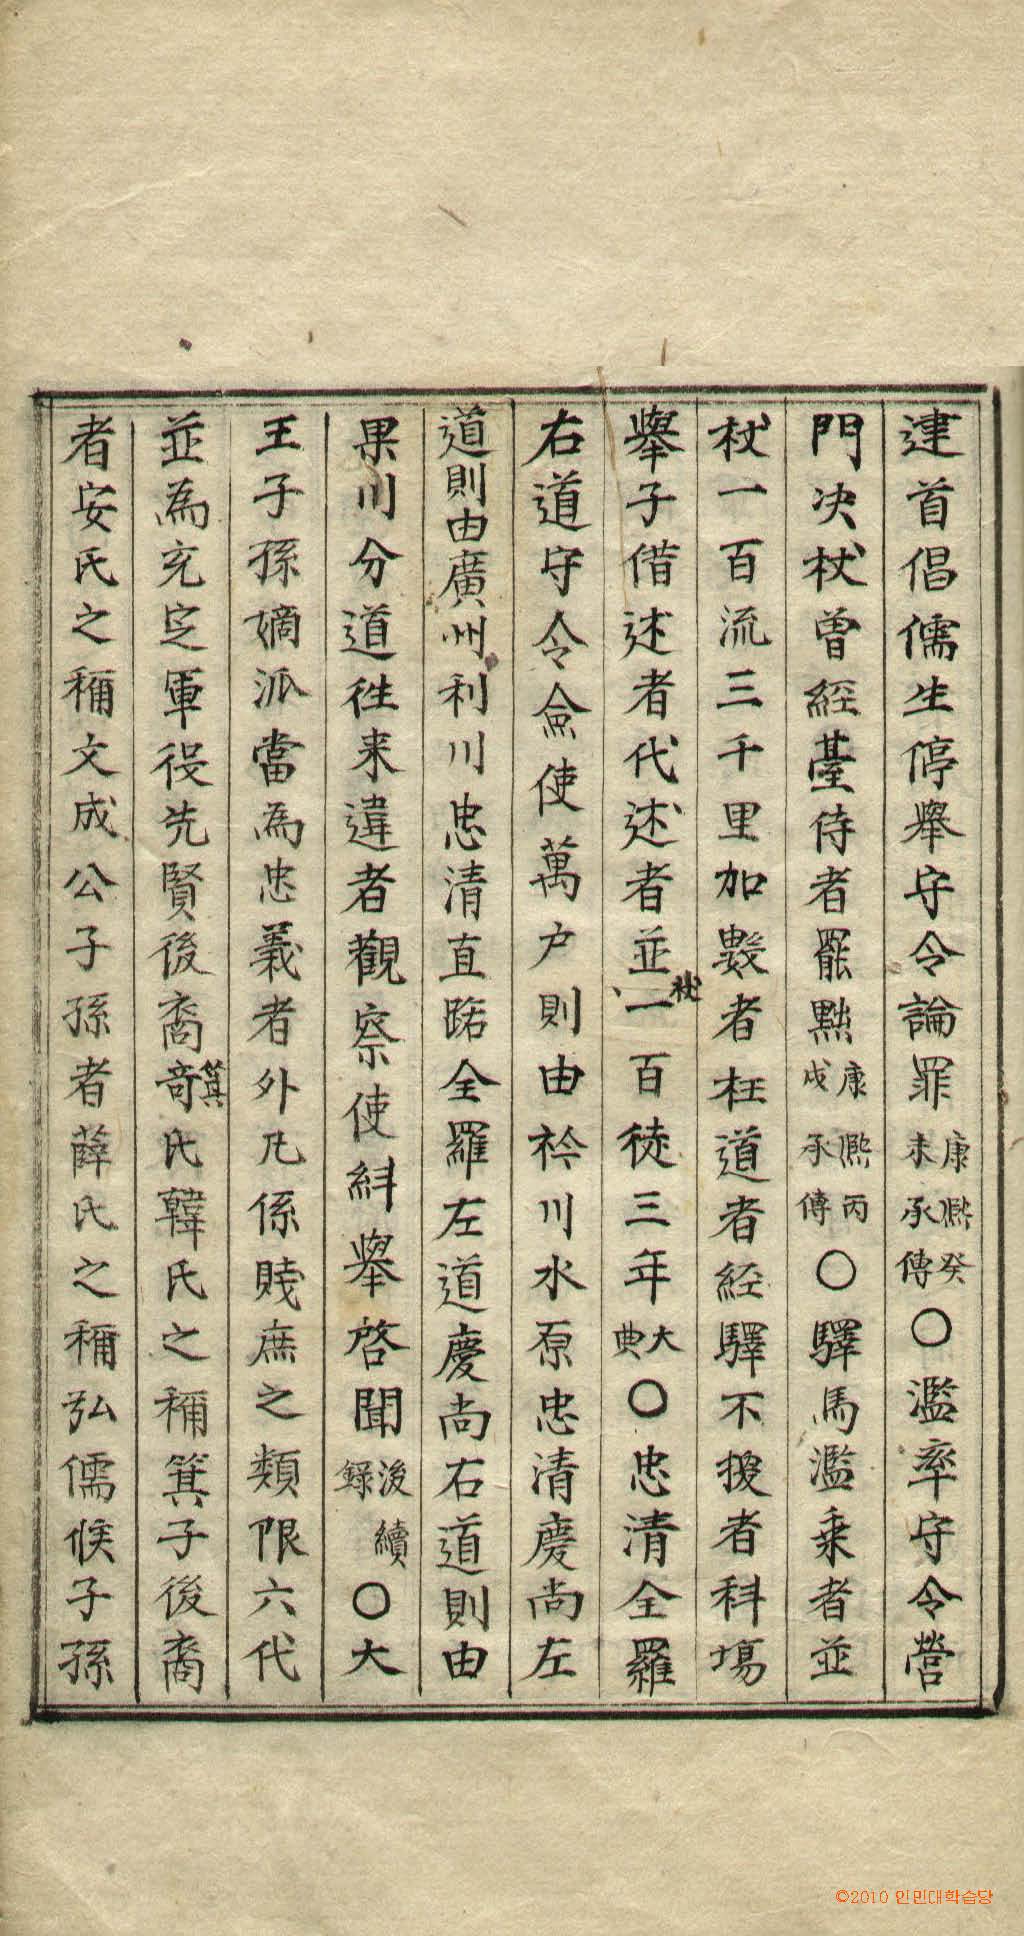 建首倡儒生停擧守令論罪康熙癸未承傳○濫率守令營
門決杖曾經臺侍者罷黜康熙丙戌承傳○驛馬濫乘者並
杖一百流三千里加數者枉道者經驛不換者科場
擧子借述者代述者並杖一百徒三年大典○忠清全羅
右道守令僉使萬户則由衿川水原忠清慶尚左
道則由廣州利川忠清直路全羅左道慶尚右道則由
果川分道徃来違者觀察使糾擧啓聞後續錄○大
王子孫嫡派當為忠義者外凡係賤庶之類限六代
並為充定軍役先賢後裔奇箕氏韓氏之稱箕子後裔
者安氏之稱文成公子孫者薛氏之稱弘儒候子孫
©2010 인민대학습당